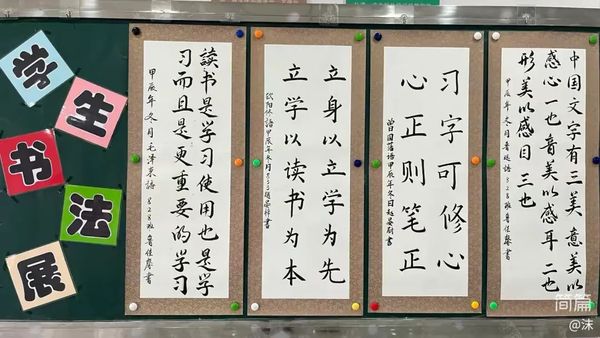 学
生
书
法
展
中国文字有三美意美以
感心一也音美以感耳二也
形美以感目三也
甲辰年冬月鲁迅语828班鲁佳馨书
习字可修心
心正则笔正
曾国藩语甲辰年冬日
立身以立学为先
立学以读书为本
欧阳修语甲辰年冬月
读书是学习使用也是学
习而且是更重要的学习
甲辰年冬月毛泽东语828班鲁佳馨书
简篇
@沫